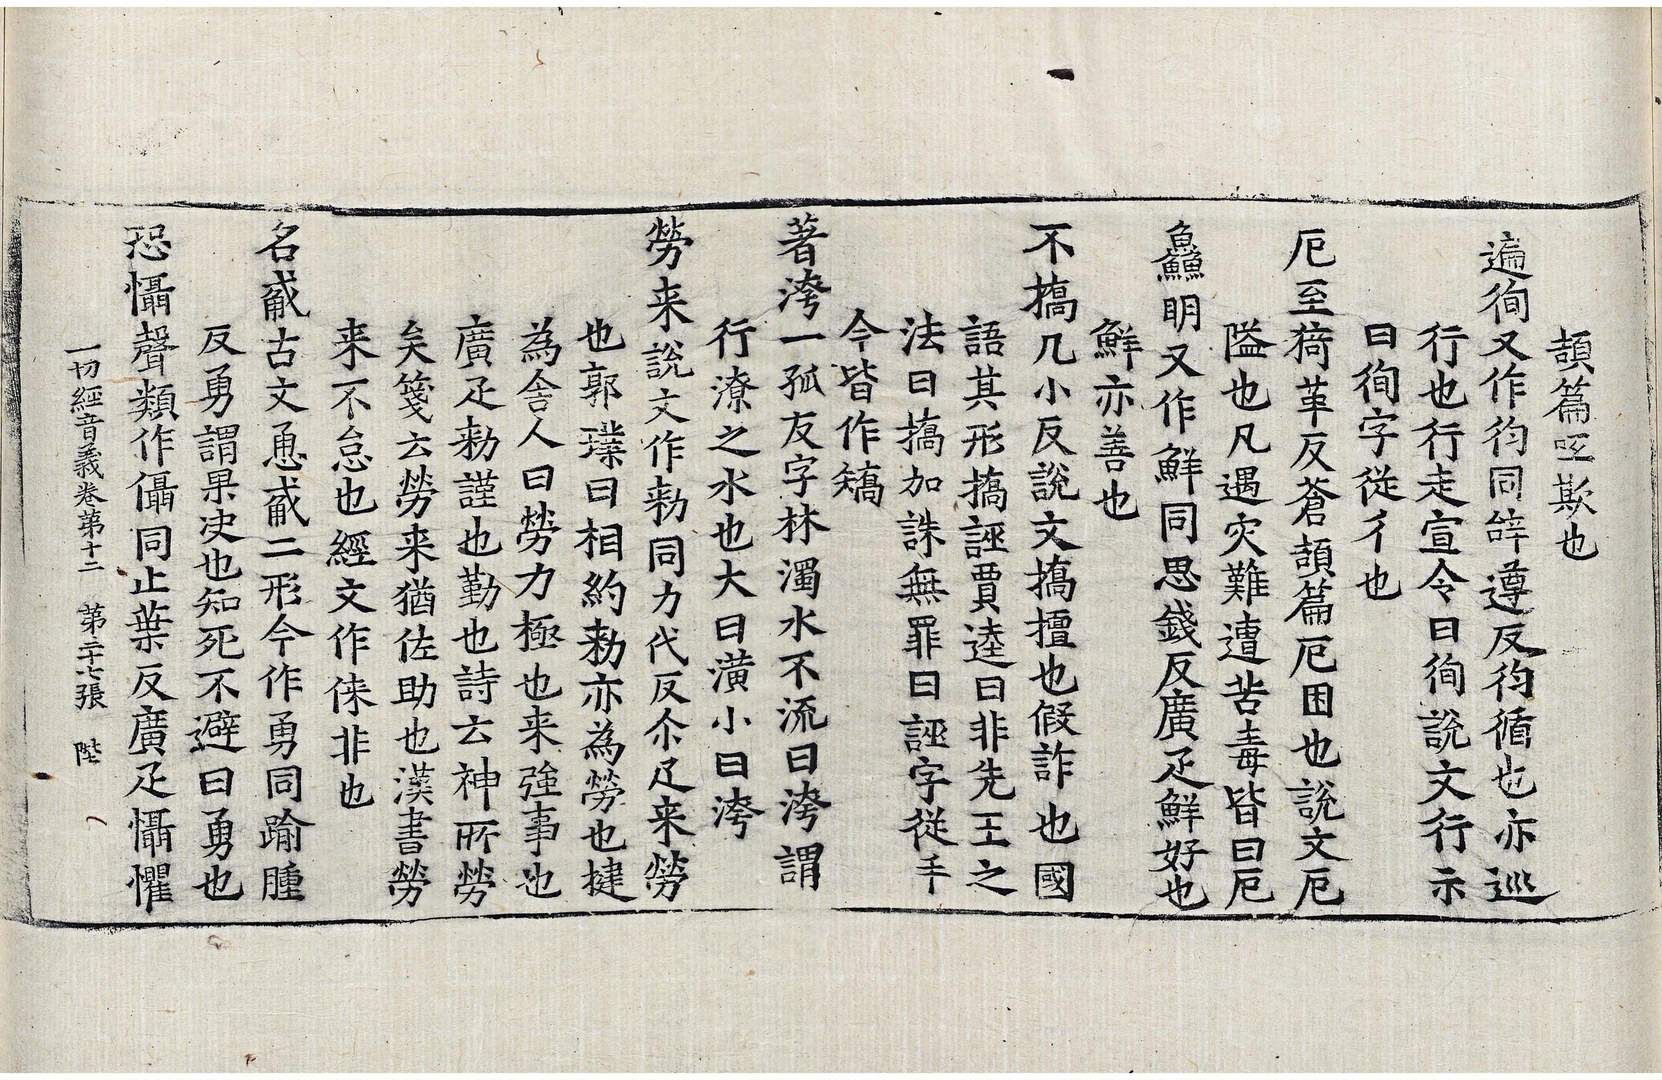 頡篇㕧欺也
遍徇又作徇同辝遵反徇循也亦巡
行也行走宣令曰徇説文行示
曰徇字從彳也
厄至猗革反蒼頡篇厄困也説文厄
隘也凡遇灾難遭苦毒皆曰厄
鱻明又作鮮同思錢反廣疋鮮好也
鮮亦善也
不撟几小反説文撟擅也假詐也國
語其形撟誣賈逵曰非先王之
法曰撟加誅無罪曰誣字從手
今皆作矯
著洿一孤反字林濁水不流曰洿謂
行潦之水也大曰潢小曰洿
勞来説文作勑同力代反尒疋来勞
也郭璞曰相約勑亦為勞也揵
為舎人曰勞力極也来強事也
廣疋勑謹也勤也詩云神所勞
矣箋云勞来猶佐助也漢書勞
来不怠也經文作倈非也
名㽙古文恿㽙二形今作勇同踰腫
反勇謂果决也知死不避曰勇也
恐懾聲類作㒤同止葉反廣疋懾懼
一切經音義卷第十二　第二十七張　陛